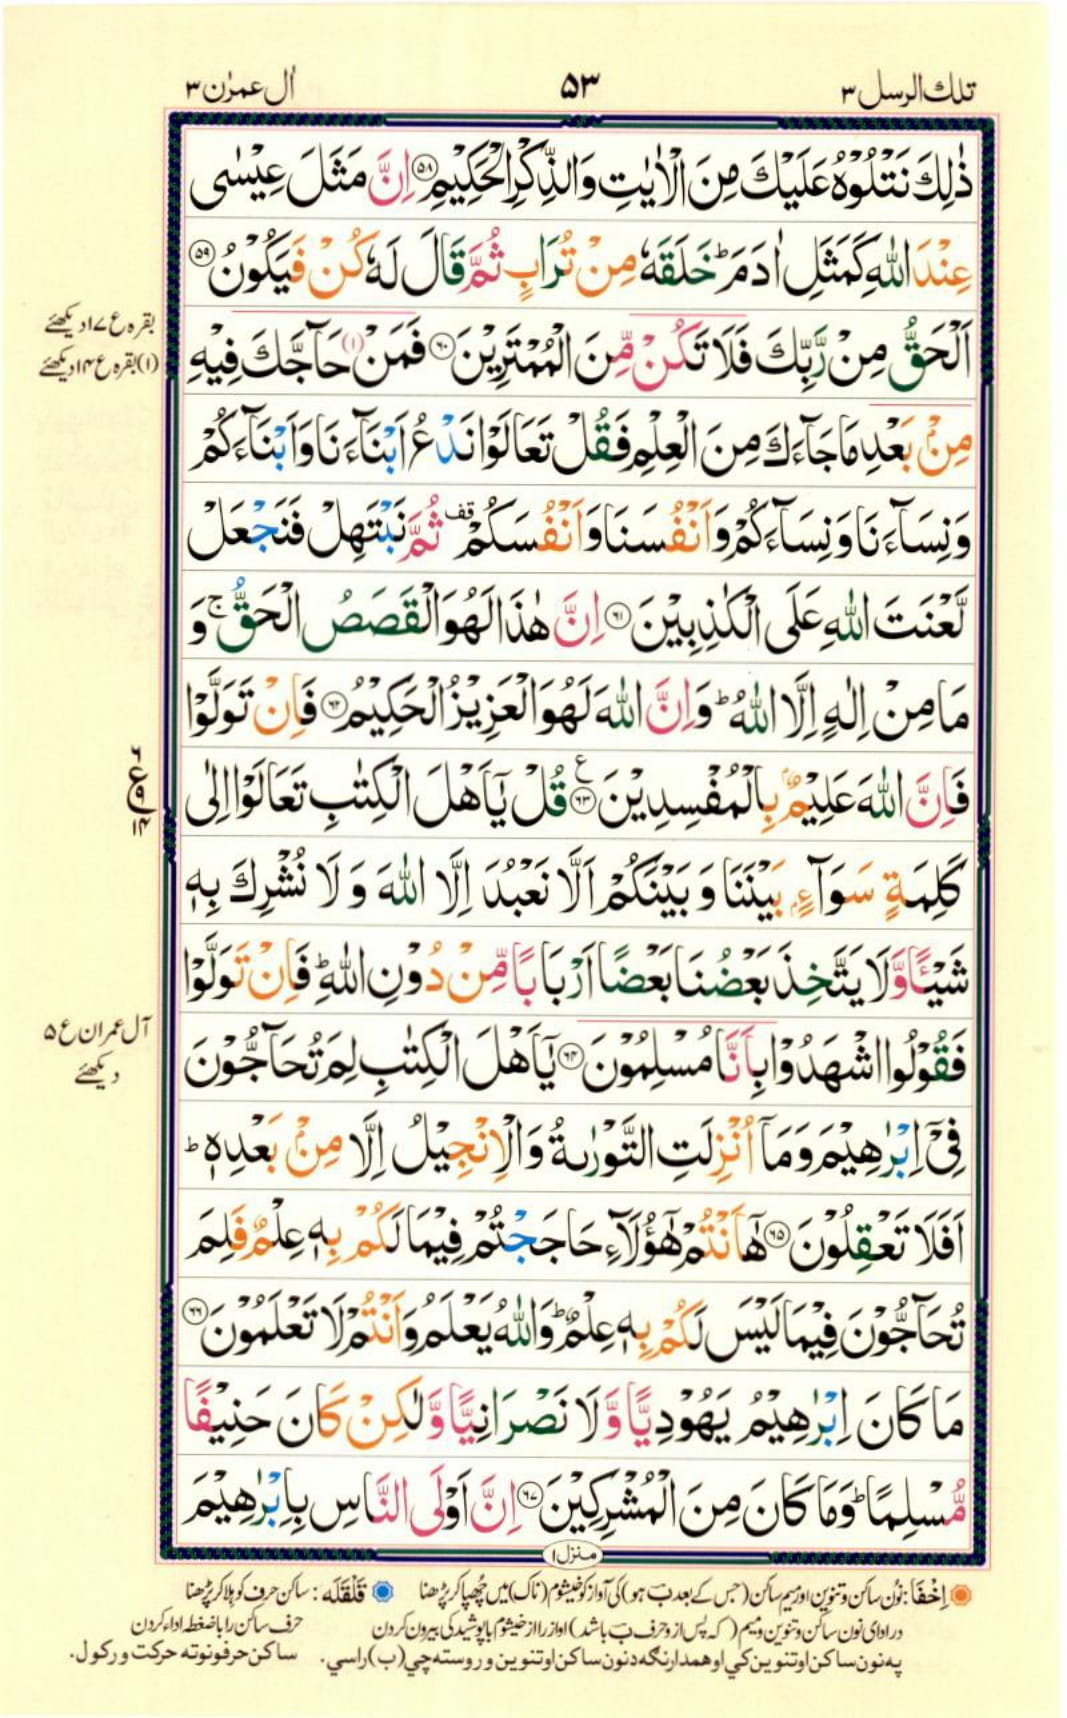 تلك الرسل ٣
٥٣
اٰل عمرٰن ٣
ذٰلِكَ نَتْلُوْهُ عَلَيْكَ مِنَ الْاٰيٰتِ وَالذِّكْرِ الْحَكِيْمِ ﴿٥٨﴾ اِنَّ مَثَلَ عِيْسٰى
عِنْدَ اللّٰهِ كَمَثَلِ اٰدَمَ ؕ خَلَقَهٗ مِنْ تُرَابٍ ثُمَّ قَالَ لَهٗ كُنْ فَيَكُوْنُ ﴿٥٩﴾
اَلْحَقُّ مِنْ رَّبِّكَ فَلَا تَكُنْ مِّنَ الْمُمْتَرِيْنَ ﴿٦٠﴾ فَمَنْ (١) حَآجَّكَ فِيْهِ
بقرہ ع ١٧ دیکھئے
(١) بقرہ ع ١٤ دیکھئے
مِنْۢ بَعْدِ مَا جَآءَكَ مِنَ الْعِلْمِ فَقُلْ تَعَالَوْا نَدْعُ اَبْنَآءَنَا وَاَبْنَآءَكُمْ
وَنِسَآءَنَا وَنِسَآءَكُمْ وَاَنْفُسَنَا وَاَنْفُسَكُمْ قف ثُمَّ نَبْتَهِلْ فَنَجْعَلْ
لَّعْنَتَ اللّٰهِ عَلَى الْكٰذِبِيْنَ ﴿٦١﴾ اِنَّ هٰذَا لَهُوَ الْقَصَصُ الْحَقُّ ۚ وَ
مَا مِنْ اِلٰهٍ اِلَّا اللّٰهُ ؕ وَاِنَّ اللّٰهَ لَهُوَ الْعَزِيْزُ الْحَكِيْمُ ﴿٦٢﴾ فَاِنْ تَوَلَّوْا
فَاِنَّ اللّٰهَ عَلِيْمٌۢ بِالْمُفْسِدِيْنَ ﴿٦٣﴾ ع قُلْ يٰۤاَهْلَ الْكِتٰبِ تَعَالَوْا اِلٰى
ع ٩ ١٤
كَلِمَةٍ سَوَآءٍۭ بَيْنَنَا وَ بَيْنَكُمْ اَلَّا نَعْبُدَ اِلَّا اللّٰهَ وَ لَا نُشْرِكَ بِهٖ
شَيْـًٔا وَّلَا يَتَّخِذَ بَعْضُنَا بَعْضًا اَرْبَابًا مِّنْ دُوْنِ اللّٰهِ ؕ فَاِنْ تَوَلَّوْا
فَقُوْلُوا اشْهَدُوْا بِاَنَّا مُسْلِمُوْنَ ﴿٦٤﴾ يٰۤاَهْلَ الْكِتٰبِ لِمَ تُحَآجُّوْنَ
آل عمران ع ٥
دیکھئے
فِيْۤ اِبْرٰهِيْمَ وَمَاۤ اُنْزِلَتِ التَّوْرٰىةُ وَالْاِنْجِيْلُ اِلَّا مِنْۢ بَعْدِهٖ ؕ
اَفَلَا تَعْقِلُوْنَ ﴿٦٥﴾ هٰۤاَنْتُمْ هٰۤؤُلَآءِ حَاجَجْتُمْ فِيْمَا لَكُمْ بِهٖ عِلْمٌ فَلِمَ
تُحَآجُّوْنَ فِيْمَا لَيْسَ لَكُمْ بِهٖ عِلْمٌ ؕ وَاللّٰهُ يَعْلَمُ وَاَنْتُمْ لَا تَعْلَمُوْنَ ﴿٦٦﴾
مَا كَانَ اِبْرٰهِيْمُ يَهُوْدِيًّا وَّ لَا نَصْرَانِيًّا وَّلٰكِنْ كَانَ حَنِيْفًا
مُّسْلِمًا ؕ وَمَا كَانَ مِنَ الْمُشْرِكِيْنَ ﴿٦٧﴾ اِنَّ اَوْلَى النَّاسِ بِاِبْرٰهِيْمَ
منزل ١
اِخْفَا: نُون ساکن و تنوین اور میم ساکن (جس کے بعد ب ہو) کی آواز کو خیشوم (ناک) میں چُھپا کر پڑھنا قَلْقَلَه: ساکن حرف کو ہلا کر پڑھنا
در ادای نون ساکن و تنوین و میم (که پس ازو حرف ب باشد) آواز را از خیشوم با پوشیدگی بیرون کردن حرف ساکن را با ضغطه اداء کردن
په نون ساكن او تنوين كي او همدارنگه د نون ساكن او تنوين وروسته چي (ب) راسي. ساكن حرفونو ته حركت وركول.